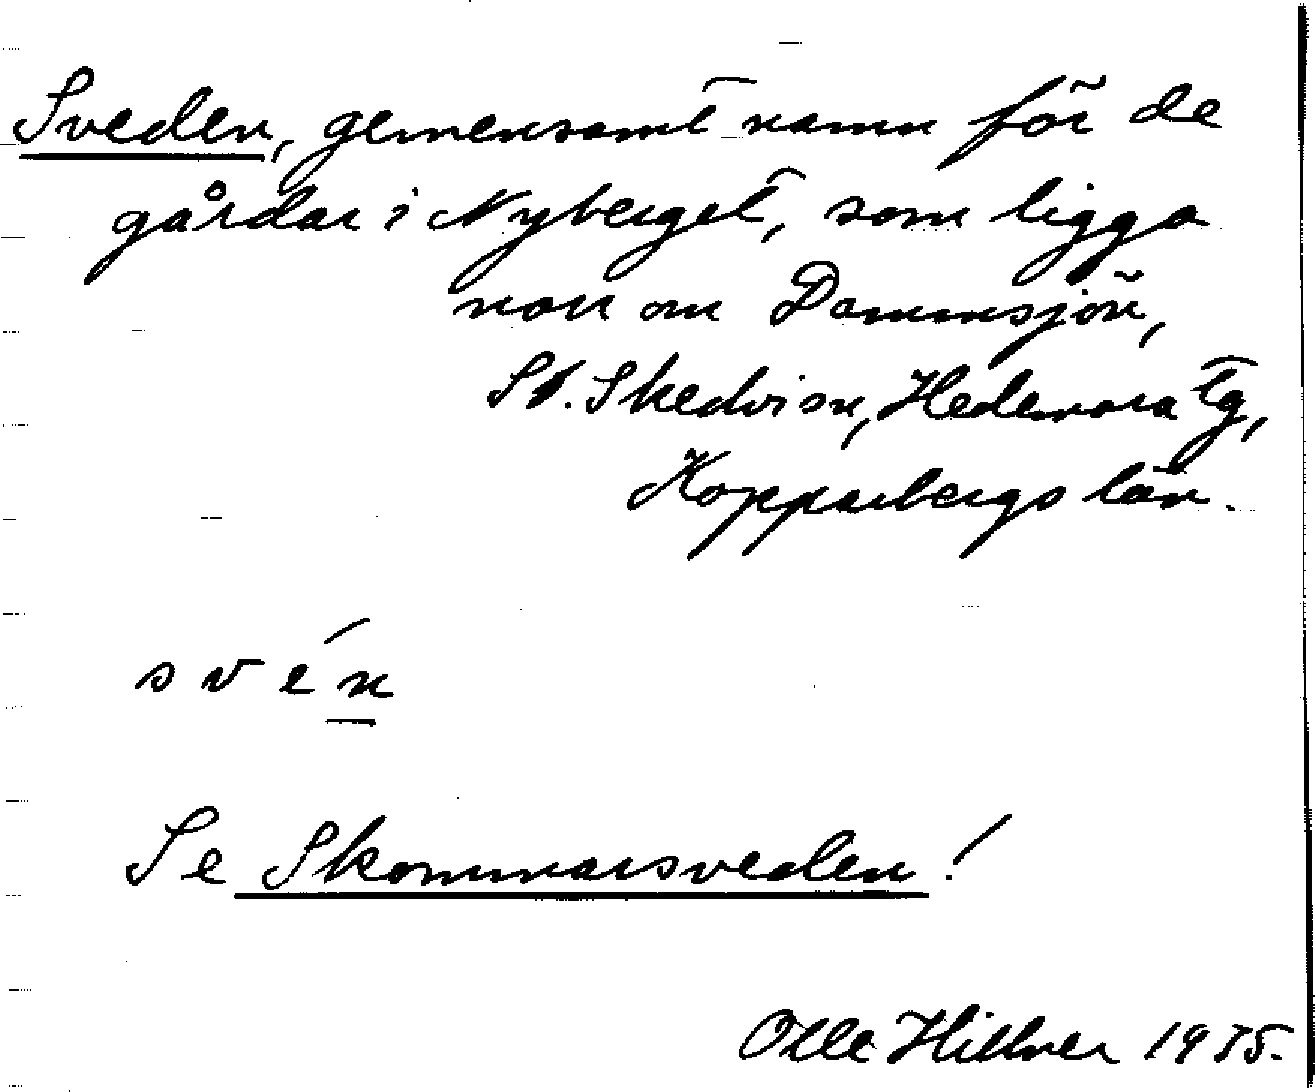 Sveden, gemensamt namn för de
gårdar i Nyberget, som ligga
norr om Dammsjön,
St. Skedvi sn, Hedemora tg,
Kopparbergs län.
svén
Se Skommarsveden!
Olle Hillner 1935.